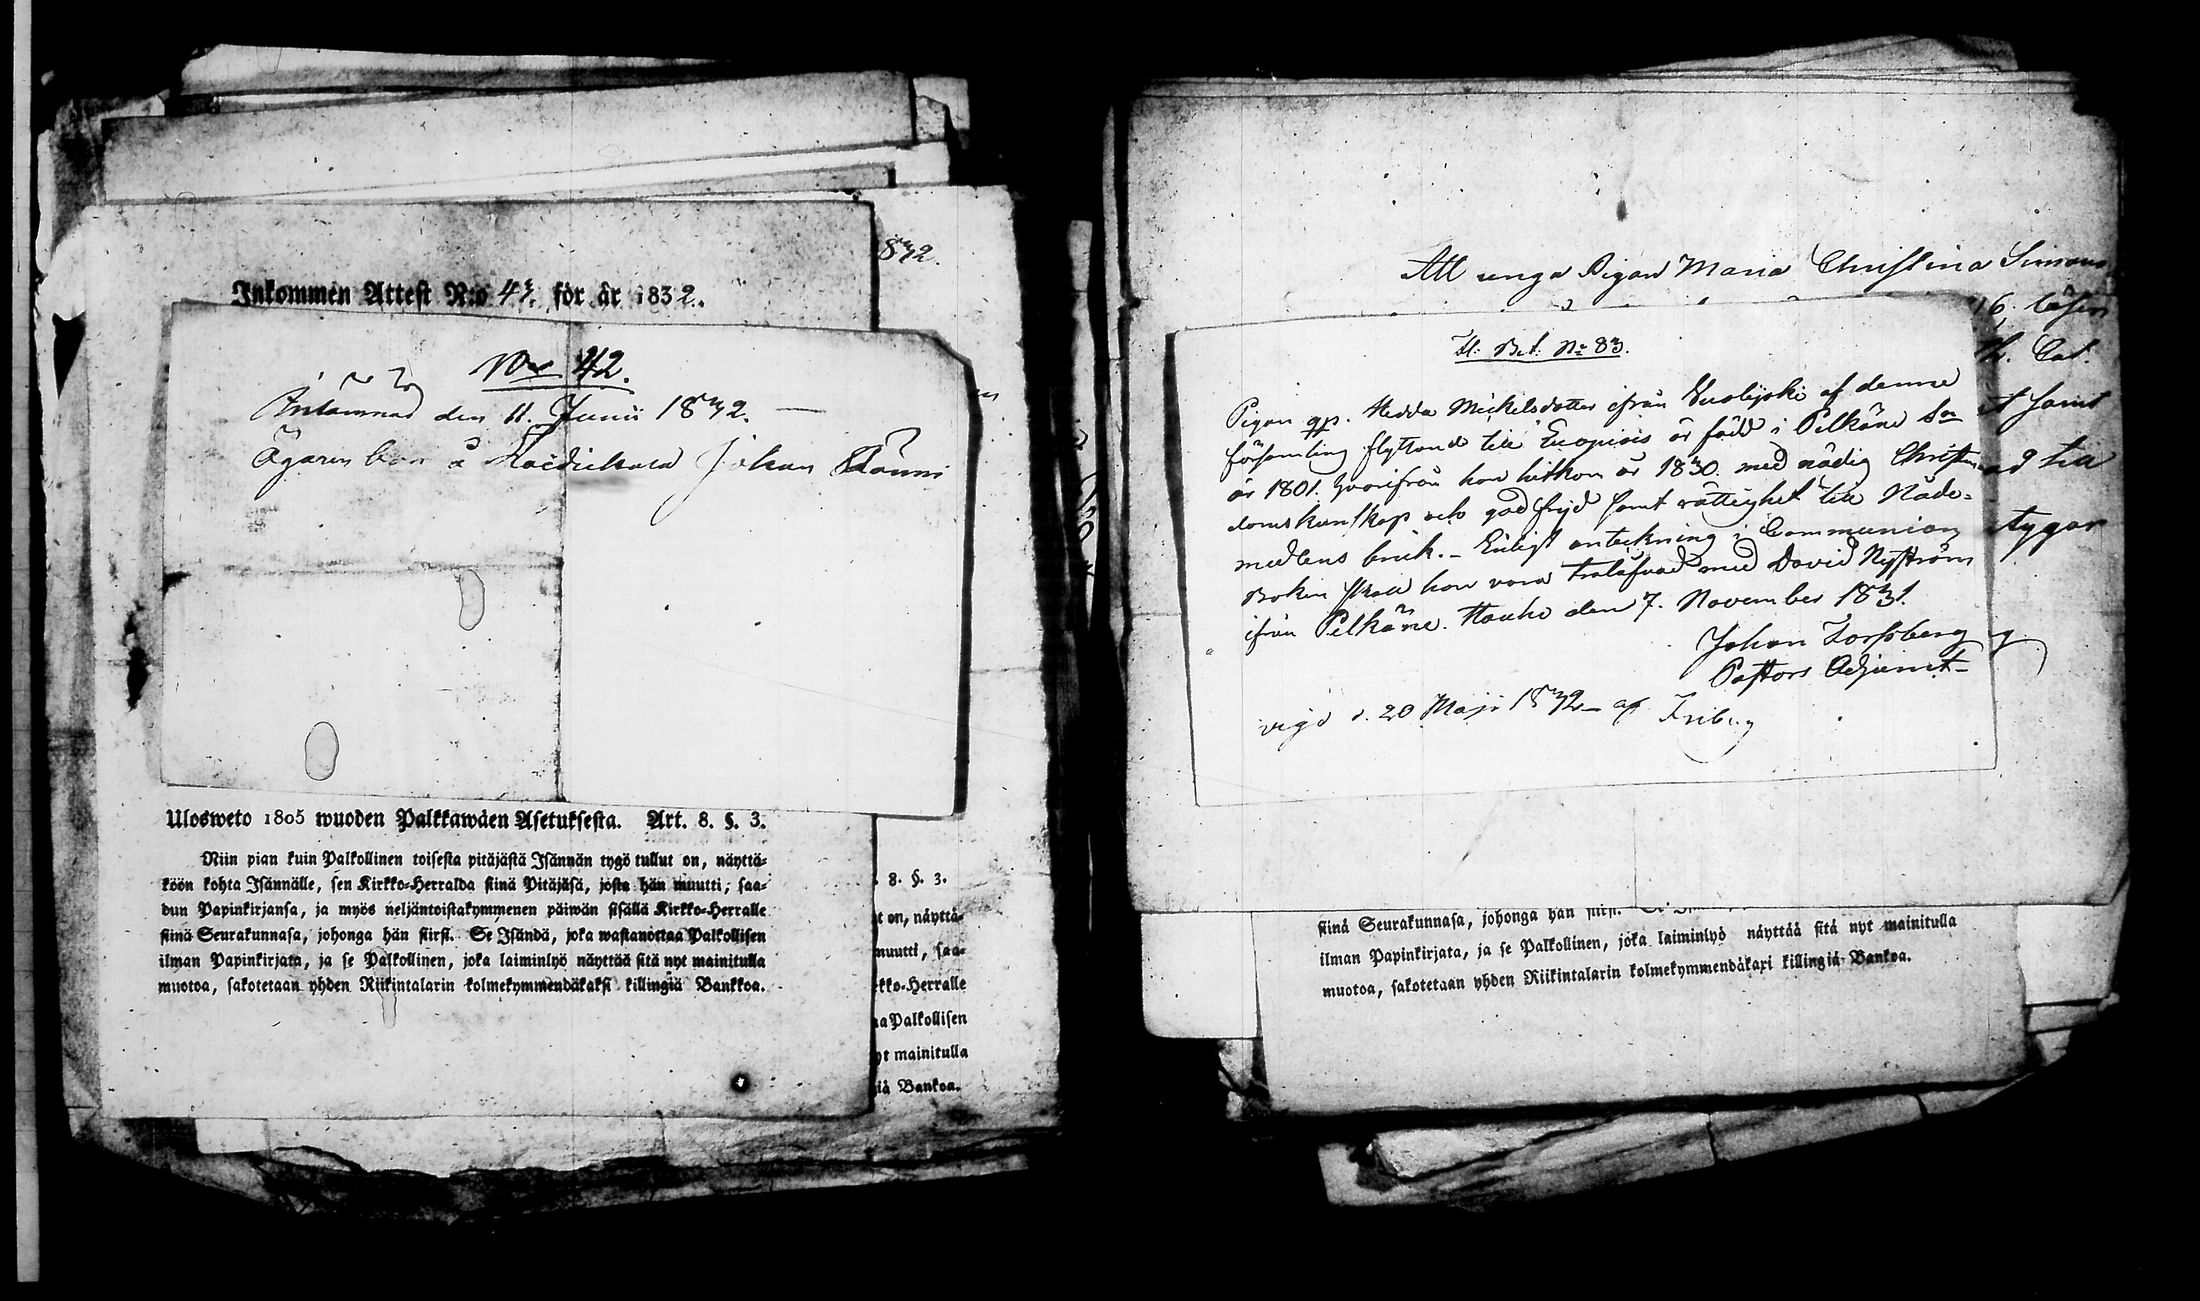 832.
Inkommen Attest N:o 43. för år 1832.
No 42.
Anlamnad den 11. Junii 1832. —
Ägaren bor å Johan
Ulosweto 1805 wuoden Palkkawäen Asetuksesta. Art. 8. §. 3.
Niin pian kuin Palkollinen toisesta pitäjästä Isännän tygö tullut on, näyttä-
köön kohta Isännälle, sen Kirkko-Herralda siinä Pitäjäsä, josta hän muutti, saa-
dun Papinkirjansa, ja myös neljäntoistakymmenen päiwän sisällä Kirkko-Herralle
siinä Seurakunnasa, johonga hän siirsi. Se Isändä, joka wastanottaa Palkollisen
ilman Papinkirjata, ja se Palkollinen, joka laiminlyö näyttää sitä nyt mainitulla
muotoa, sakotetaan yhden Riikintalarin kolmekymmendäkaksi killingiä Bankkoa.
. 8. §. 3.
t on, näyttä-
muutti, saa-
kko-Herralle
aa Palkollisen
yt mainitulla
iä Bankoa.
Att unga Pigan Maria Christina Simons
16, läser
Cat.
t samt
ad till
tygar
Fl. Bet. No 83.
Pigan qp. Hedda Mickelsdotter ifrån Vuolijoki af denna
församling flyttande till Euopiois är född i Pelkäne Sn
år 1801. hvarifrån hon hitkom år 1830. med nödig Christen-
domskunskap och god frejd samt rättighet till Nåde-
medlens bruk. – Enligt anteckning i Communion
Boken skall hon vara trolofvad med David Nyström
ifrån Pelkäne. Hauho den 7. November 1831.
Johan Forssberg
Pastors Adjunct
vigd d. 20 Maji 1832 – af Friberg
siinä Seurakunnasa, johonga hän siirsi.
ilman Papinkirjata, ja se Palkollinen, joka laiminlyö näyttää sitä nyt mainitulla
muotoa, sakotetaan yhden Riikintalarin kolmekymmendäkaxi killingiä Bankoa.